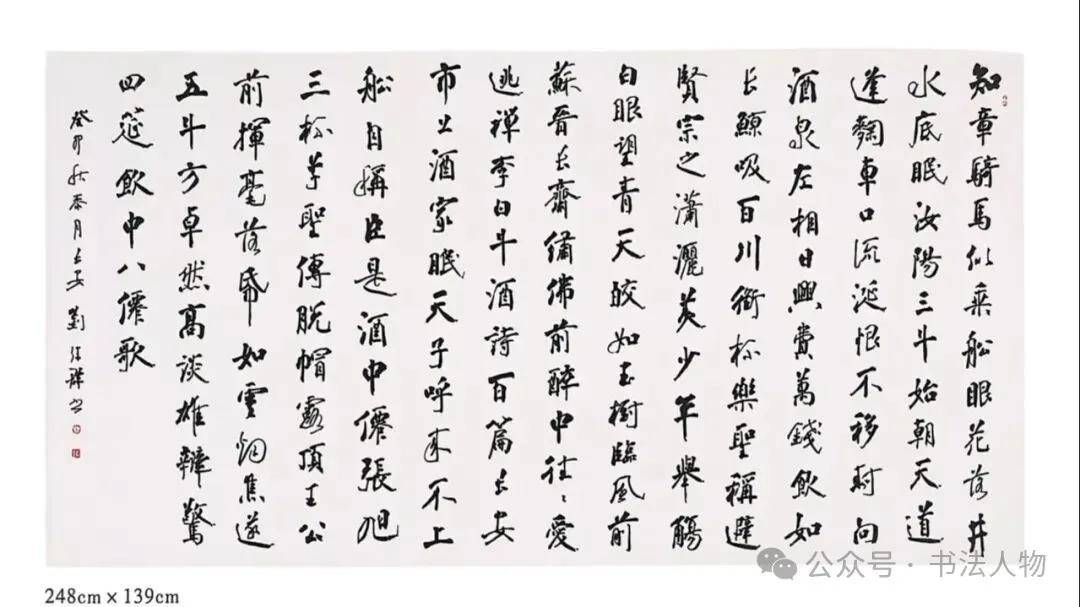 知章騎馬似乘船眼花落井
水底眠汝陽三斗始朝天道
逢麴車口流涎恨不移封向
酒泉左相日興費萬錢飲如
長鯨吸百川銜杯樂聖稱避
賢宗之瀟灑美少年舉觴
白眼望青天皎如玉樹臨風前
蘇晉長齋繡佛前醉中往〻愛
逃禪李白斗酒詩百篇長安
市上酒家眠天子呼來不上
船自稱臣是酒中僊張旭
三杯草聖傳脫帽露頂王公
前揮毫落帋如雲烟焦遂
五斗方卓然高談雄辯驚
四筵飲中八僊歌
癸卯秋月長安劉書
248cm×139cm
公众号·书法人物